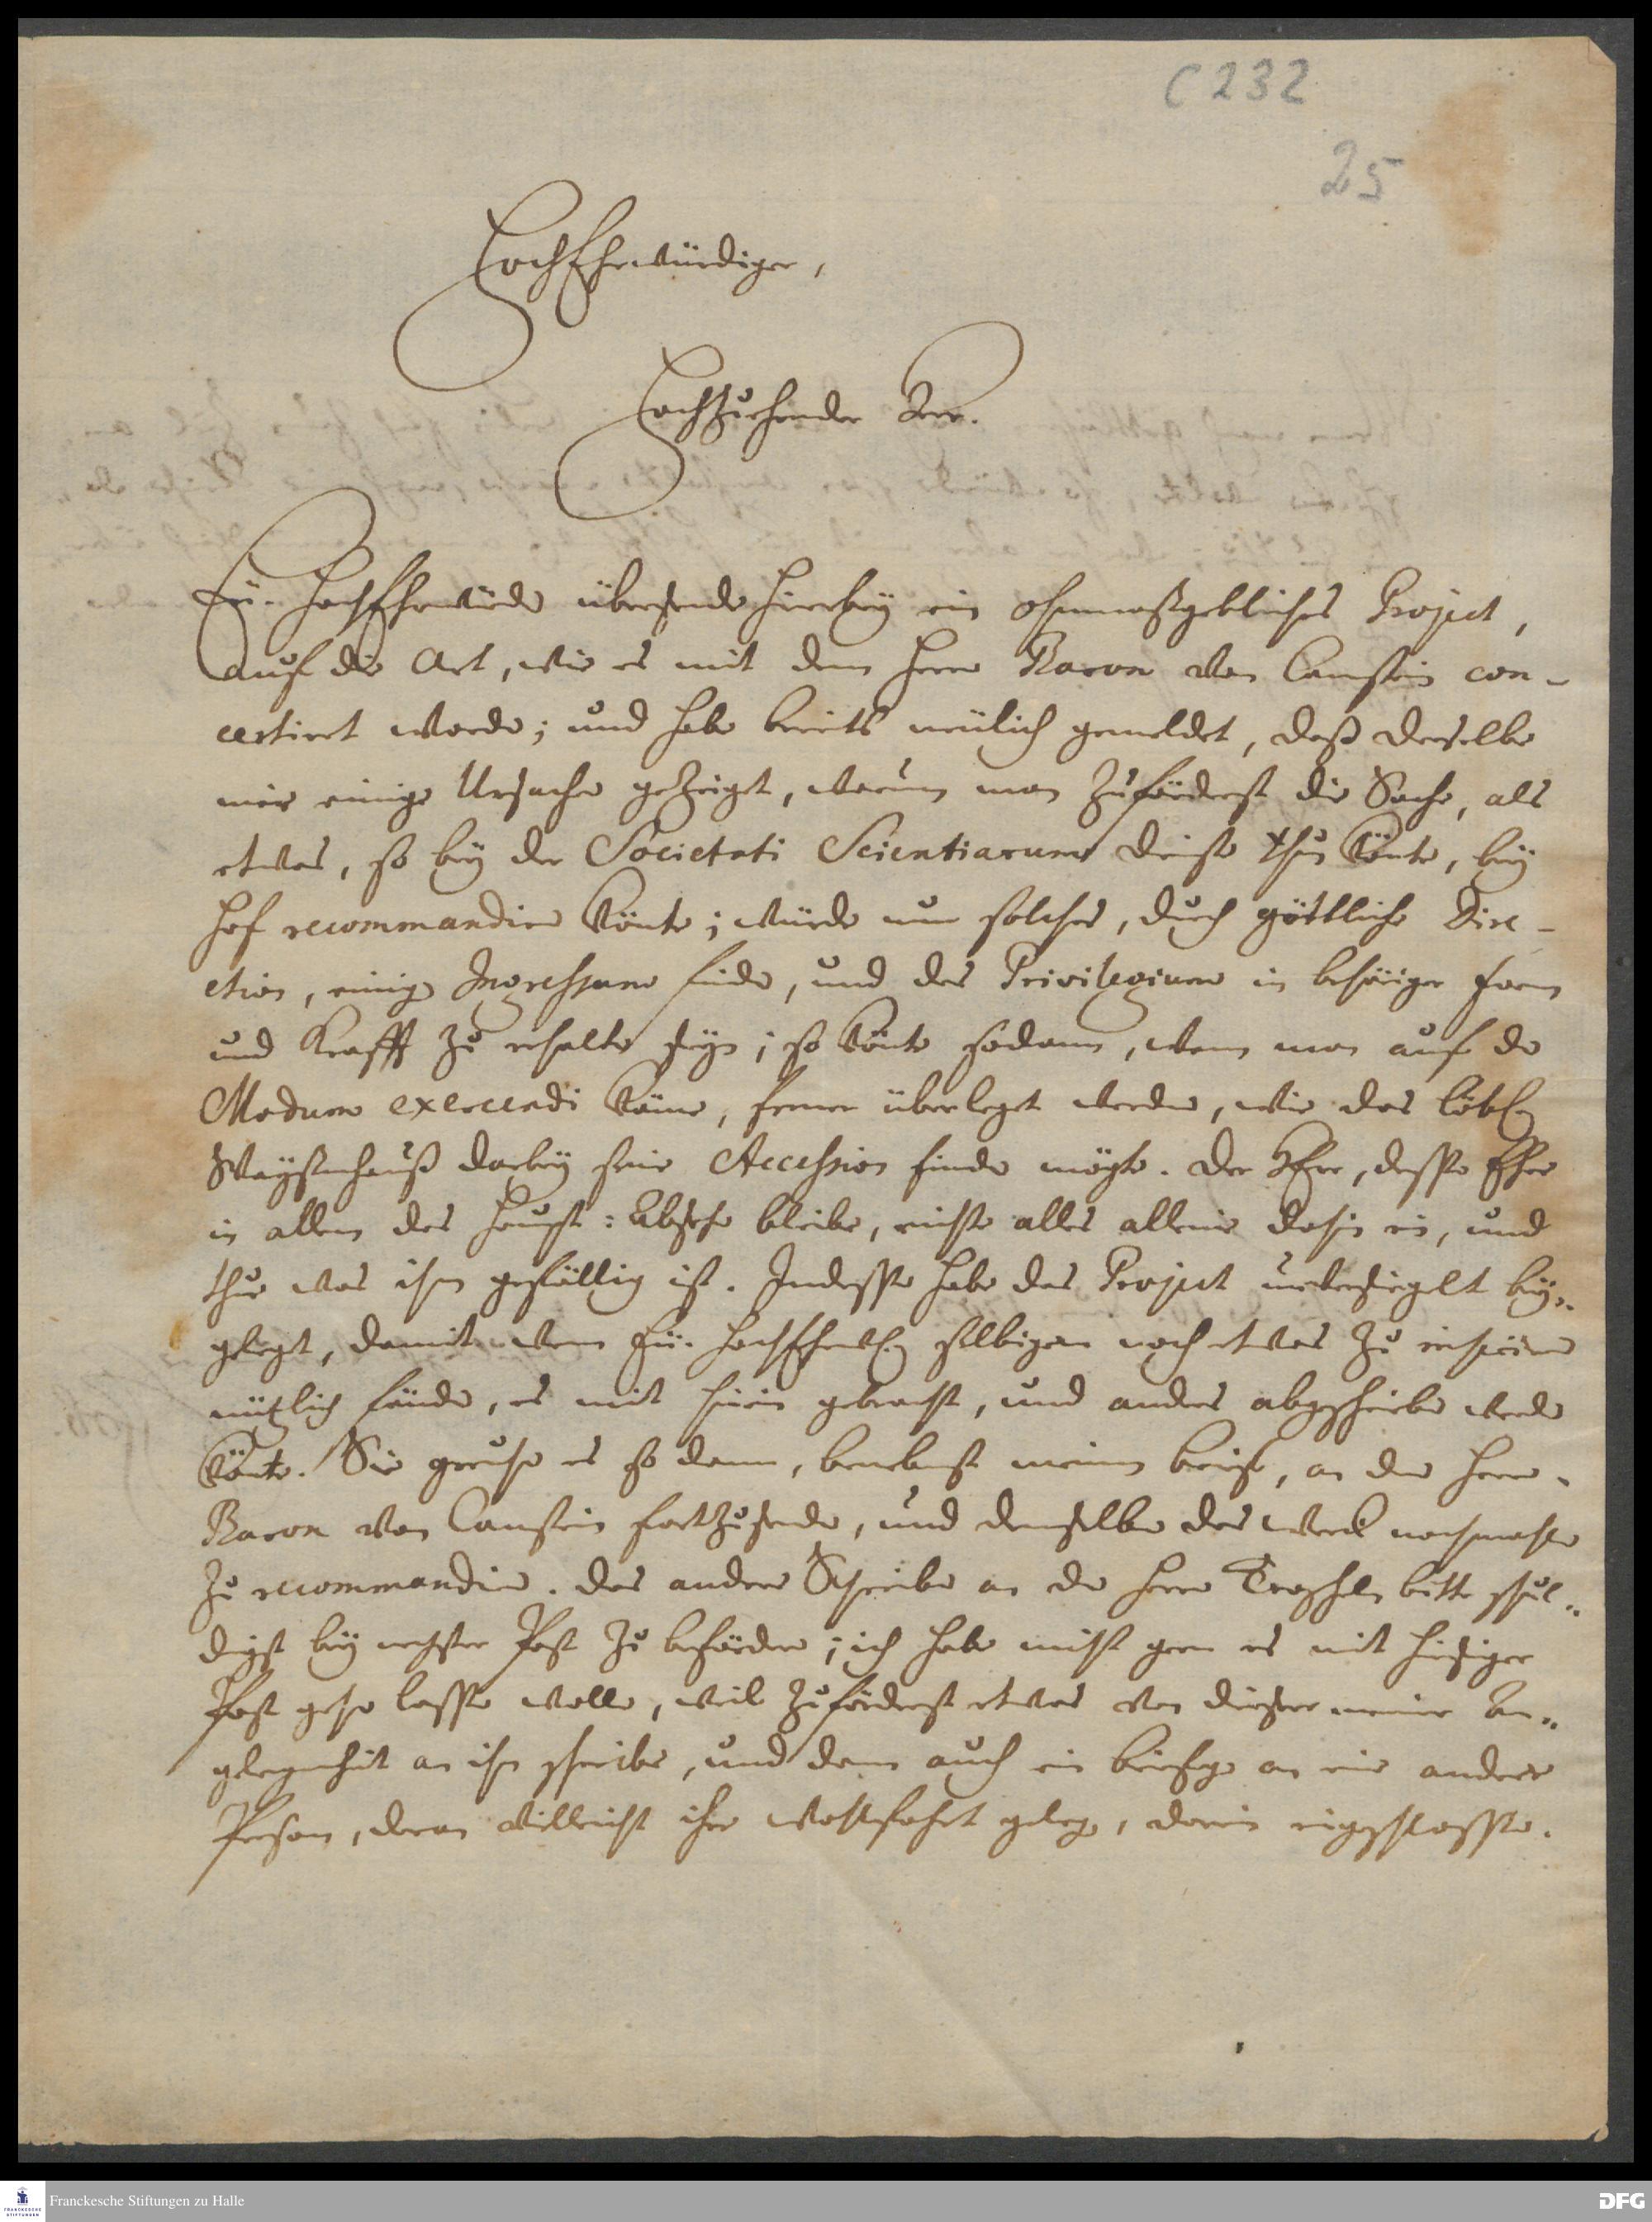 C 232
25
HochEhrwürdiger,
Hochzuehrender Herr.
Eü. HochEhrwürde übersende hierbey ein ohnmaßgebliches Project,
auf die Art, wie es mit dem Herrn Baron von Canstein con-
certiret worde; und habe bereits neülich gemeldet, daß derselbe
mir einige Ursache gezeiget, warum man zuförderst die Sache, als
etwas, so bey der Societati Scientiarum dienste thun könte, bey
Hof recommandire könte; würde nun solches, durch göttliche Dire-
ction, einige Ingressum finde, und das Privilegium in behöriger form
und Krafft zu erhalte seyn; so könte sodann, wenn man auf de
Modum exercendi käme, ferner überleget werde, wie das löbl.
Waysenhauß darbey seine Accession finde mögte. Der HErr, desse Ehre
in allem das Haupt: Absehe bleibe, richte alles alleine dahin ein, und
thue was ihm gefällig ist. Indesse habe das Project unversiegelt bey-
geleget, damit wenn Eü. HochEhrw. selbigem noch etwas zu inserire
nützlich fände, es mit hinein gebracht, und anders abgeschriebe werde
könte. Sie geruhe es so dann, benebenst meinem briefe, an den Herrn
Baron von Canstein fortzusende, und demselbe das Werk nochmahls
zu recommandire. Das andere Schreibe an de Herrn Troschel bitte schul-
digst bey nechster Post zu befördere; ich habe nicht gern es mit hiesiger
Post gehe lasse wolle, weil zuförderst etwas von dieser meiner An-
gelegenheit an ihn schreibe, und dann auch ein briefge an eine andere
Person, daran villeicht ihre Wohlfahrt gelege, darin eingeschlosse.
Franckesche Stiftungen zu Halle
FRANCKESCHE STIFTUNGEN
DFG